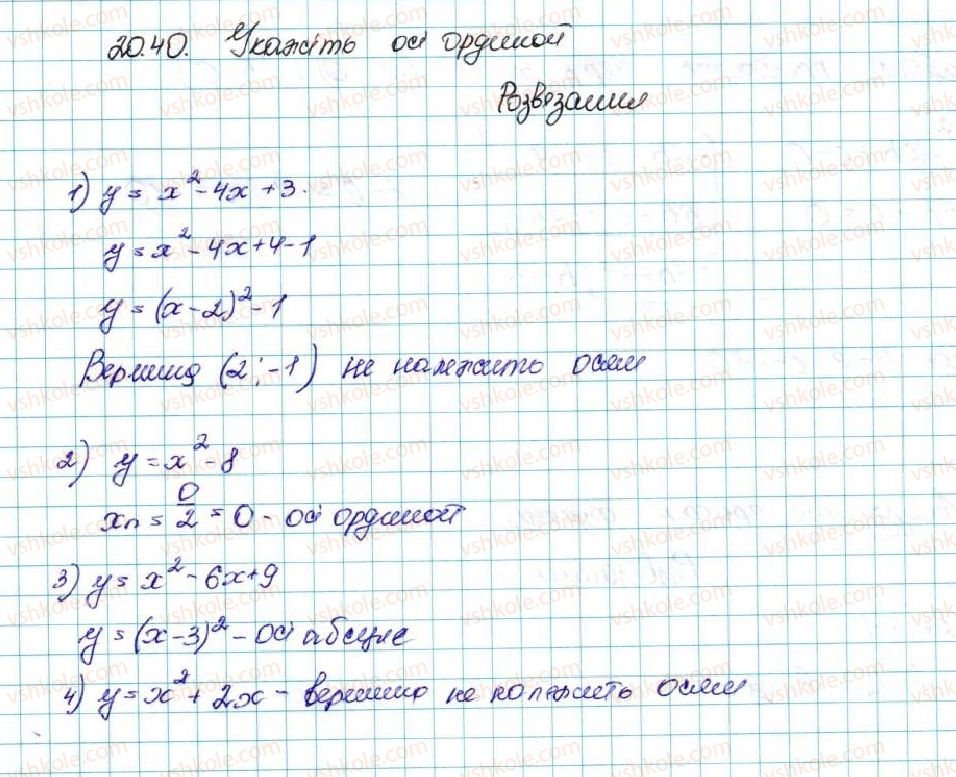 20.40. Укажіть осі ординой
Розвязання
1) y = x² - 4x + 3.
y = x² - 4x + 4 - 1
y = (x - 2)² - 1
Вершина (2; -1) не належить осям
2) y = x² - 8
xn = 0/2 = 0 - осі ординой
3) y = x² - 6x + 9
y = (x - 3)² - осі абсцис
4) y = x² + 2x - вершина не належить осям